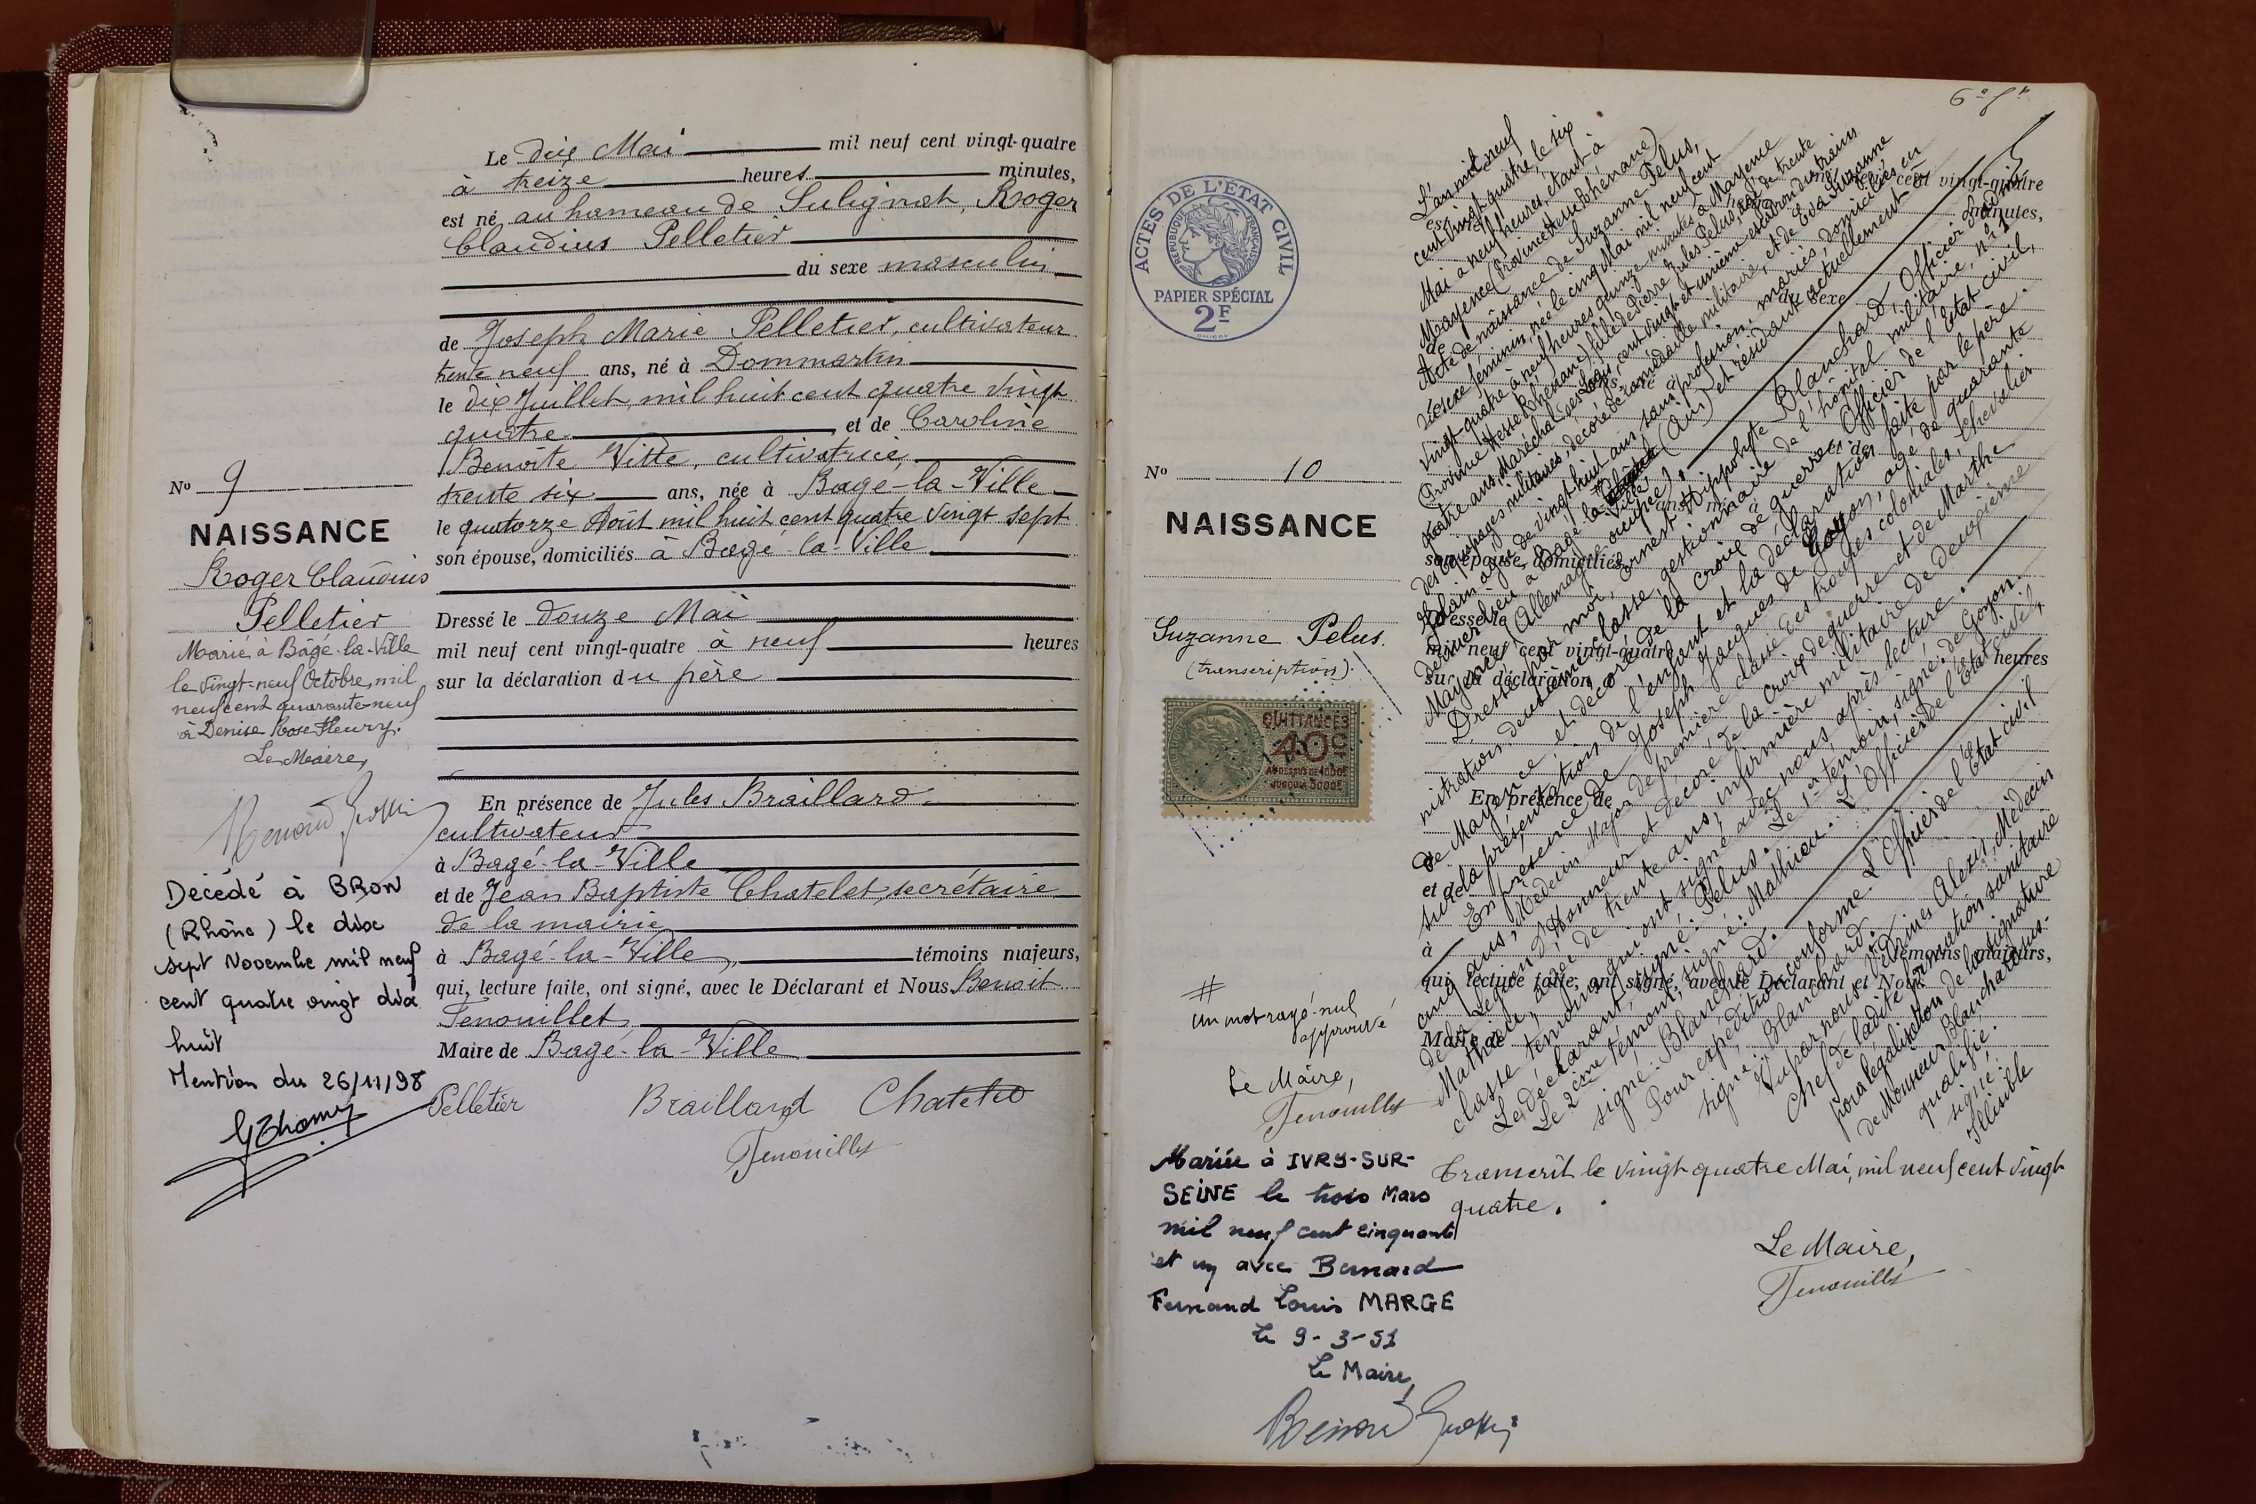 Le dix Mai mil neuf cent vingt-quatre
à treize heures minutes,
est né au hameau de Sulignat, Roger
Claudius Pelletier
du sexe masculin
de Joseph Marie Pelletier, cultivateur
trente neuf ans, né à Dommartin
le dix Juillet, mil huit cent quatre vingt
quatre, et de Caroline
Benoîte Vitte, cultivatrice,
trente six ans, née à Bagé-la-Ville
le quatorze Août mil huit cent quatre vingt sept
son épouse, domiciliés à Bagé-la-Ville
Dressé le douze Mai
mil neuf cent vingt-quatre à neuf heures
sur la déclaration du père
En présence de Jules Braillard
cultivateur
à Bagé-la-Ville
et de Jean Baptiste Chatelet, secrétaire
de la mairie
à Bagé-la-Ville, témoins majeurs,
qui, lecture faite, ont signé, avec le Déclarant et Nous Benoit
Fenouillet
Maire de Bagé-la-Ville
Pelletier Braillard
No 9
NAISSANCE
Roger Claudius
Pelletier
Marié à Bâgé-la-Ville
le vingt-neuf Octobre, mil
neuf cent quarante-neuf
à Denise Rose Fleury.
Le Maire,
Décédé à BRON
(Rhône) le dix
sept Novembre mil neuf
cent quatre vingt dix
huit
Mention du 26/11/98
ACTES DE L'ÉTAT CIVIL
RÉPUBLIQUE FRANÇAISE
PAPIER SPÉCIAL
2F
No 10
NAISSANCE
Suzanne Pelus.
(transcription).
QUITTANCES
40c
AU DESSUS DE 1000F
JUSQU'À 3000F
#
Un mot rayé nul
approuvé
Le Maire,
Mariée à IVRY-SUR-
SEINE le trois Mars
mil neuf cent cinquante
et un avec Bernard
Fernand Louis MARGE
le 9-3-51
Le Maire,
L'an mil neuf
cent vingt quatre, le six
Mai à neuf heures, étant à
Mayence (Province Hesse Rhénane)
Acte de naissance de Suzanne Pelus,
du sexe féminin, née le cinq Mai mil neuf cent
vingt-quatre à neuf heures quinze minutes à Mayence
(Province Hesse Rhénane) fille de Pierre Jules Pelus, âgé de trente
quatre ans, Maréchal des Logis, cent vingt et unième escadron du train
des équipages militaires, décoré de la médaille militaire, et de Eva Suzanne
âgée de vingt huit ans sans profession, mariés, domiciliés en
dernier lieu à Bagé la Ville (Ain) et résidant actuellement à
Mayence (Allemagne occupée).
Dressé par moi, Ernest Hippolyte Blanchard, Officier d'admi-
nistration de deuxième classe, gestionnaire de l'hôpital militaire, no 1
de Mayence et décoré de la croix de guerre, Officier de l'état civil,
sur la présentation de l'enfant et la déclaration faite par le père.
En présence de Joseph Jacques de Goyon, âgé de quarante
cinq ans, Médecin Major de première classe des troupes coloniales, Chevalier
de la Légion d'Honneur et décoré de la croix de guerre et de Marthe
Mathieu, âgée de trente ans, infirmière militaire de deuxième
classe témoins qui ont signé avec nous après lecture.
Le déclarant, signé: Pelus. Le 1er témoin, signé: de Goyon.
Le 2ème témoin, signé: Mathieu. L'Officier de l'état civil,
signé: Blanchard.
Pour expédition conforme L'Officier de l'Etat civil
signé: Blanchard.
Vu par nous Védrines Alexis, Médecin
Chef de ladite formation sanitaire
pour légalisation de la signature
de Monsieur Blanchard sus-
qualifié.
signé:
Illisible
mil neuf cent vingt-quatre
minutes,
du sexe
son épouse, domiciliés
Dressé le
mil neuf cent vingt-quatre
heures
sur la déclaration
En présence de
et de
à
témoins majeurs,
qui, lecture faite, ont signé, avec le Déclarant et Nous
Maire de
Transcrit le vingt quatre Mai, mil neuf cent vingt
quatre.
Le Maire,